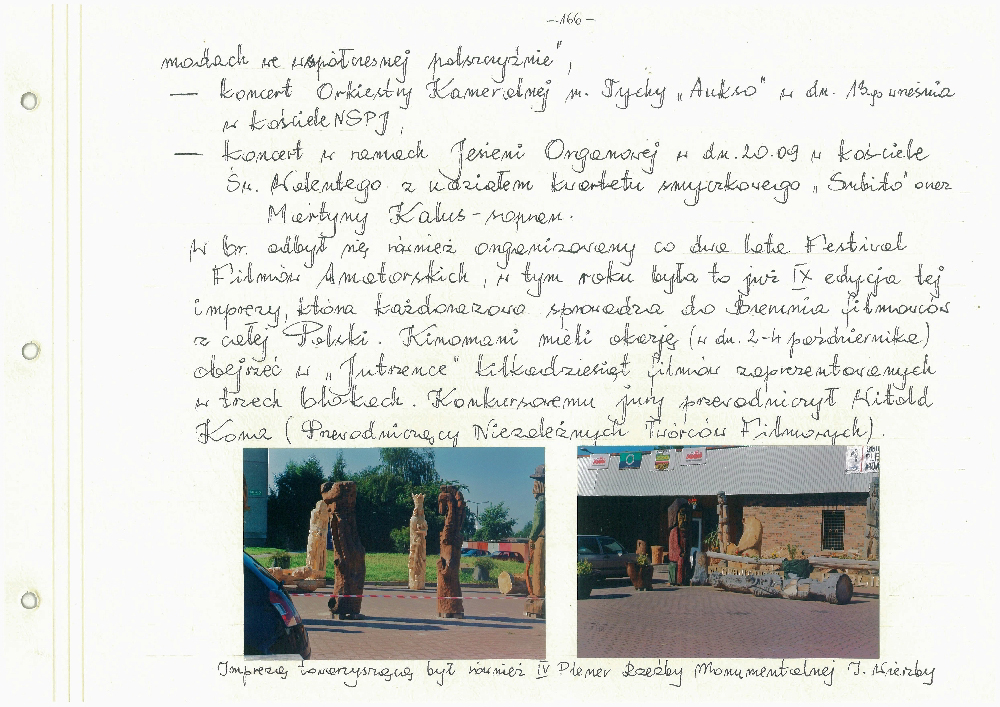 -166-
modach we współczesnej polszczyźnie",
— koncert Orkiestry Kameralnej m. Tychy „Aukso" w dn. 13go września
w kościele NSPJ,
— koncert w ramach Jesieni Organowej w dn. 20.09 w kościele
Św. Walentego z udziałem kwartetu smyczkowego „Subito" oraz
Martyny Kalus-sopran.
W br. odbył się również organizowany co dwa lata Festival
Filmów Amatorskich, w tym roku była to już IX edycja tej
imprezy, która każdorazowo sprowadza do Bierunia filmowców
z całej Polski. Kinomani mieli okazję (w dn. 2-4 października)
obejrzeć w „Jutrzence" kilkadziesiąt filmów zaprezentowanych
w trzech blokach. Konkursowemu jury przewodniczył Witold
Kona (Przewodniczący Niezależnych Twórców Filmowych).
Imprezą towarzyszącą był również IV Plener Rzeźby Monumentalnej J. Wierzby